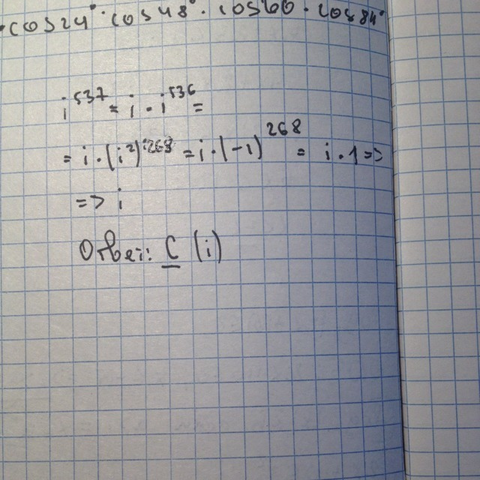 cos24° · cos48° · cos60 · cos84°
i⁵³⁷ = i · i⁵³⁶ =
= i · (i²)²⁶⁸ = i · (-1)²⁶⁸ = i · 1 =>
=> i
Ответ: C (i)